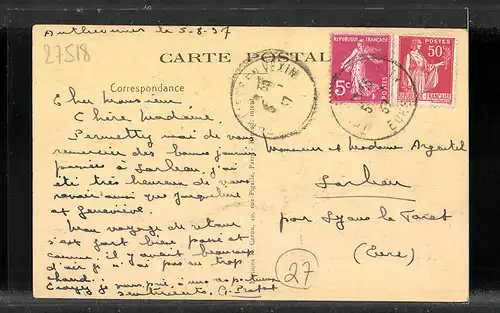 le 5-8-37
27518
CARTE POSTALE
Correspondance
RÉPUBLIQUE FRANÇAISE
5c
POSTES
POSTES
50c
RF
VEXIN
EURE
Cher Monsieur,
Chère Madame,
Permettez moi de vous
remercier des bonnes journées
passées à J'ai
été très heureux de vous
revoir ainsi que Jacqueline
et Geneviève.
Mon voyage de retour
s'est fort bien passé et
comme il y avait beaucoup
d'air je n'ai pas eu trop
chaud.
Croyez je vous prie, à mes respectueux
sentiments. G.
Monsieur et Madame
par Lyons la Forêt
(Eure)
27